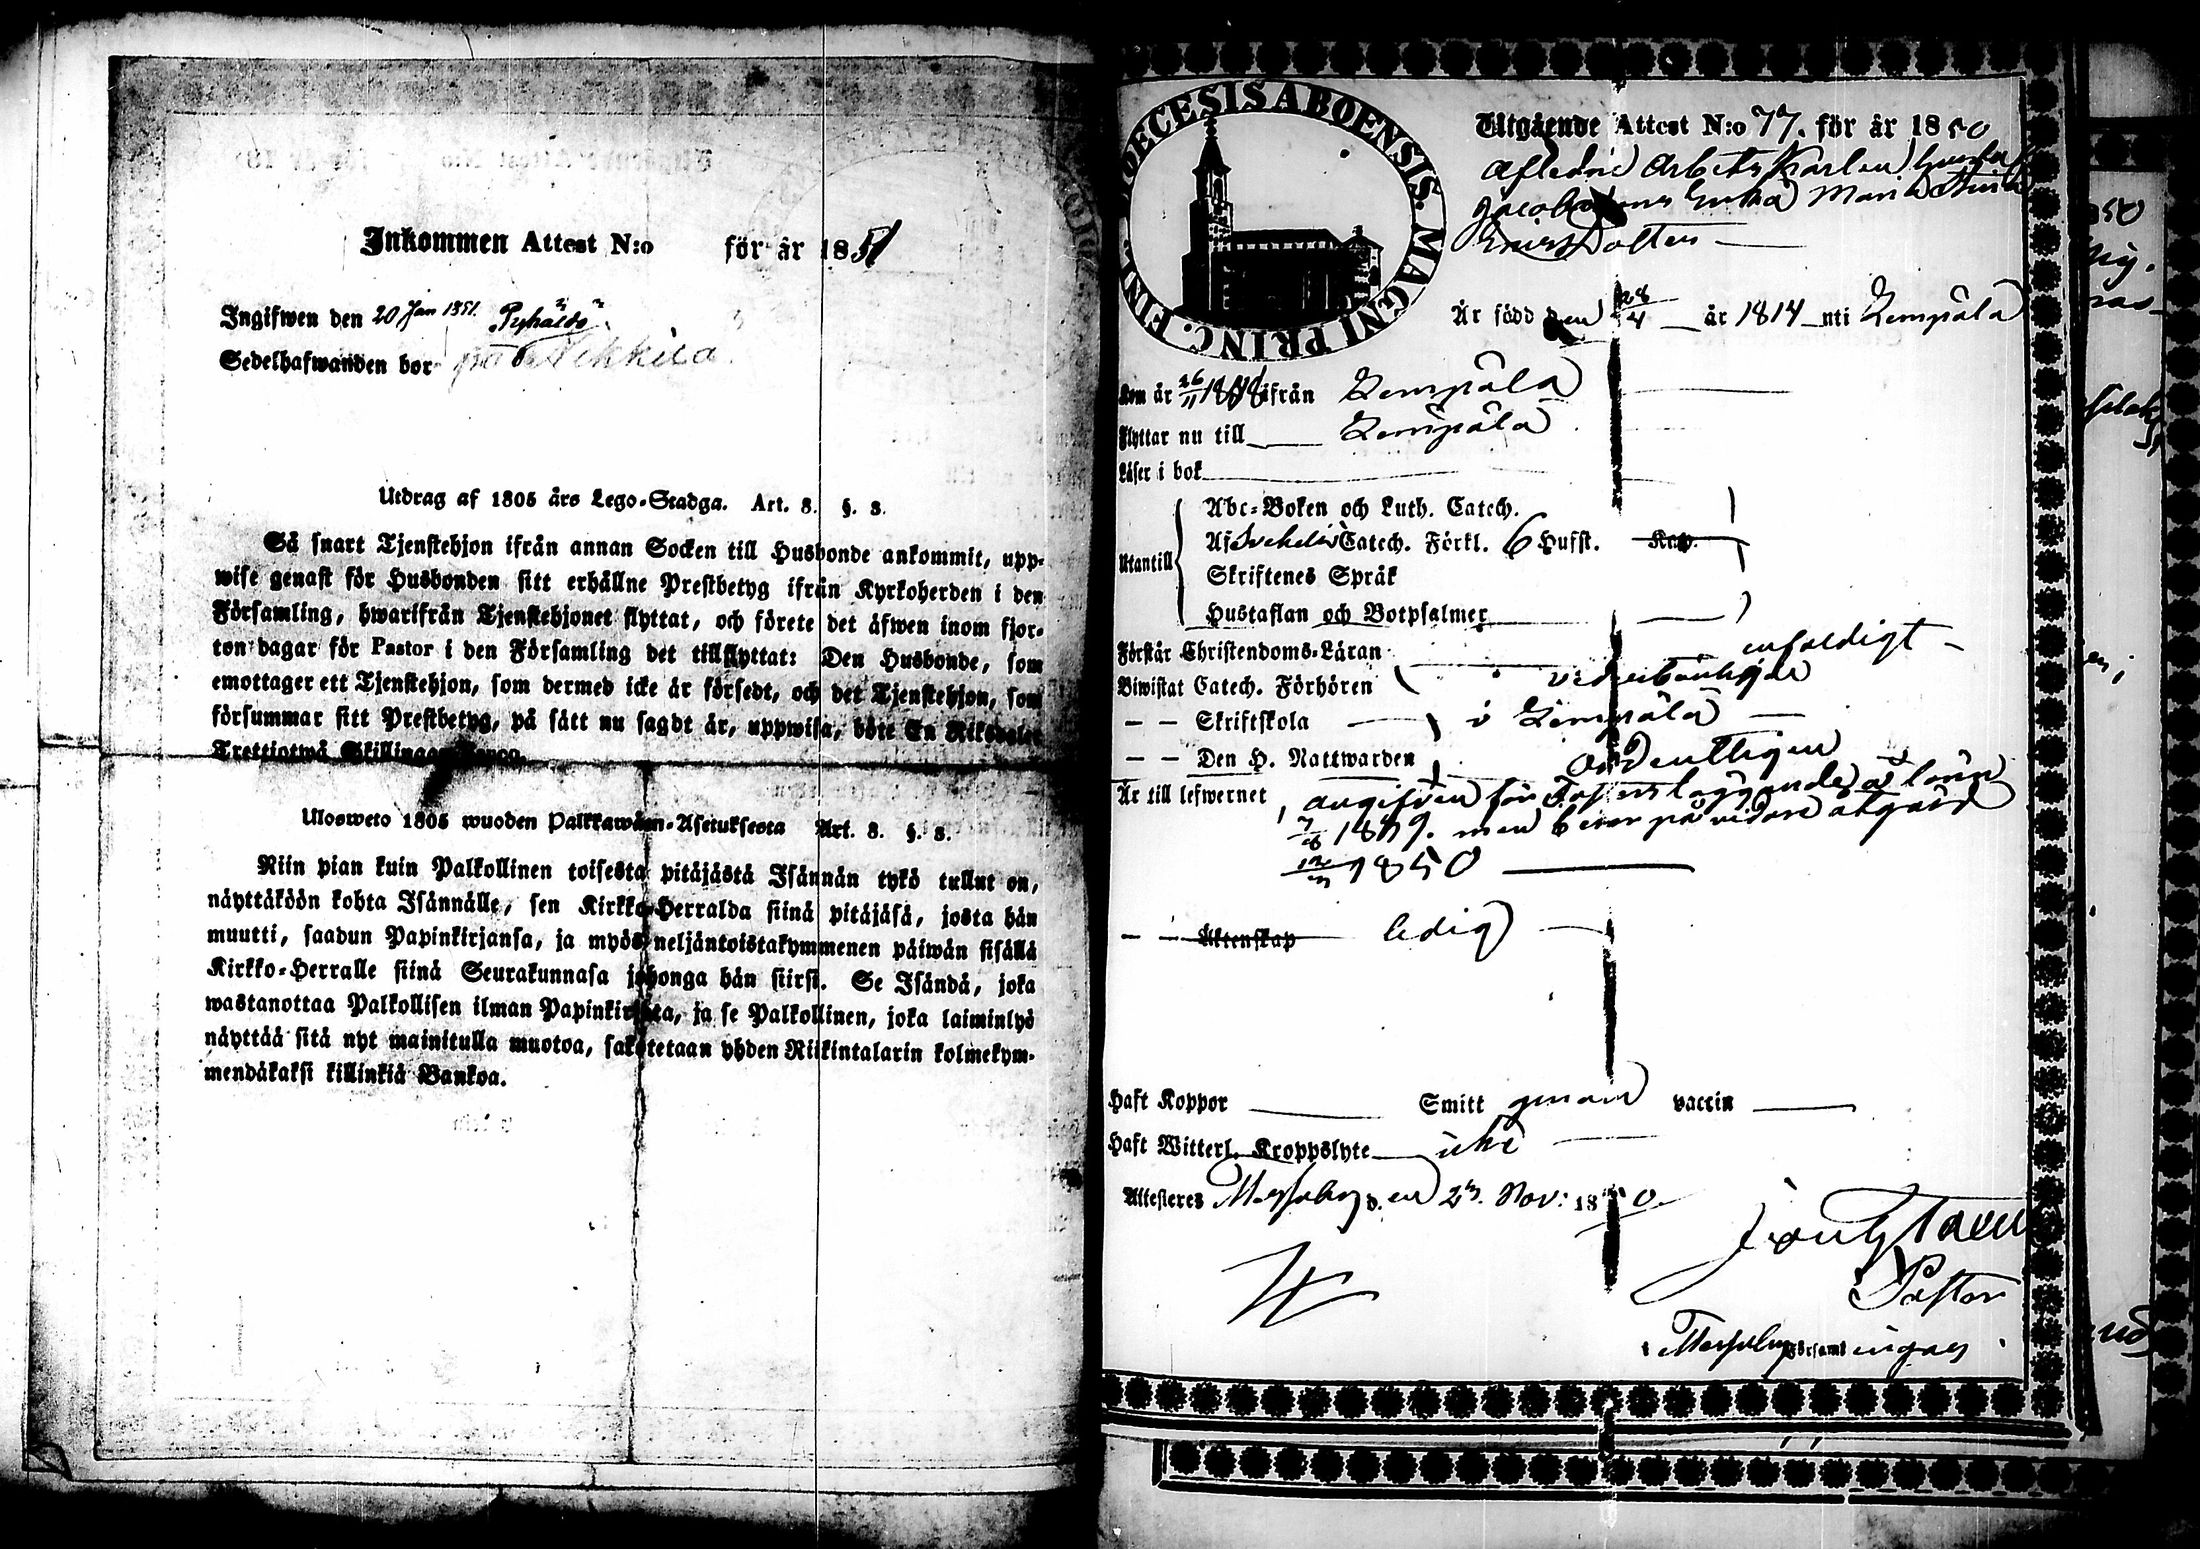 Inkommen Attest N:o för år 1851
Ingifwen den 20 Jan 1851.
Sedelhafwanden bor på
Utdrag af 1805 års Lego-Stadga. Art. 8. §. 8.
Så snart Tjenstehjon ifrån annan Socken till Husbonde ankommit, upp-
wise genast för Husbonden sitt erhållne Prestbetyg ifrån Kyrkoherden i den
Församling, hwarifrån Tjenstehjonet flyttat, och förete det äfwen inom fjor-
ton dagar för Pastor i den Församling det tillflyttat: Den Husbonde, som
emottager ett Tjenstehjon, som dermed icke är försedt, och det Tjenstehjon, som
försummar sitt Prestbetyg, på sätt nu sagdt är, uppwisa, böte En Riksdaler
Trettiotwå Skillingar Banco.
Ulosweto 1805 wuoden Palkkawäen-Asetuksesta Art. 8. §. 8.
Niin pian kuin Palkollinen toisesta pitäjästä Isännän tykö tullut on,
näyttäköön kohta Isännälle, sen Kirkko-Herralda siinä pitäjäsä, josta hän
muutti, saadun Papinkirjansa, ja myös neljäntoistakymmenen päiwän sisällä
Kirkko-Herralle siinä Seurakunnasa johonga hän siirsi. Se Isändä, joka
wastanottaa Palkollisen ilman Papinkirjata, ja se Palkollinen, joka laiminlyö
näyttää sitä nyt mainitulla muotoa, sakotetaan yhden Riikintalarin kolmekym-
mendäkaksi killinkiä Bankoa.
DIOECESIS ABOENSIS. MAGNI PRINC. FINL.
Utgående Attest N:o 77. för år 1850
Afledne Arbets Karlen Gustaf
Jacobssons Enka Maria Stina
Ericsdotter
Är född den 28/4 år 1814 uti Lempälä
Kom år 26/11 1848 ifrån Lempälä
Flyttar nu till Lempälä
Läser i bok
Utantill
Abc-Boken och Luth. Catech.
Af Svebelii Catech. Förkl. 6 Hufst. Kap.
Skriftenes Språk
Hustaflan och Botpsalmer
Förstår Christendoms-Läran enfaldigt
Biwistat Catech. Förhören
— — Skriftskola i Lempälä
— — Den H. Nattwarden ordentligen
Är till lefwernet, angifven för
1849. men
1850
— — Äktenskap ledig
Haft Koppor Smitt genom vaccin
Haft Witterl. Kroppslyte icke
Attesteras Messuby d. en 23. Nov: 1850.
Pastor
Messuby Församlingas